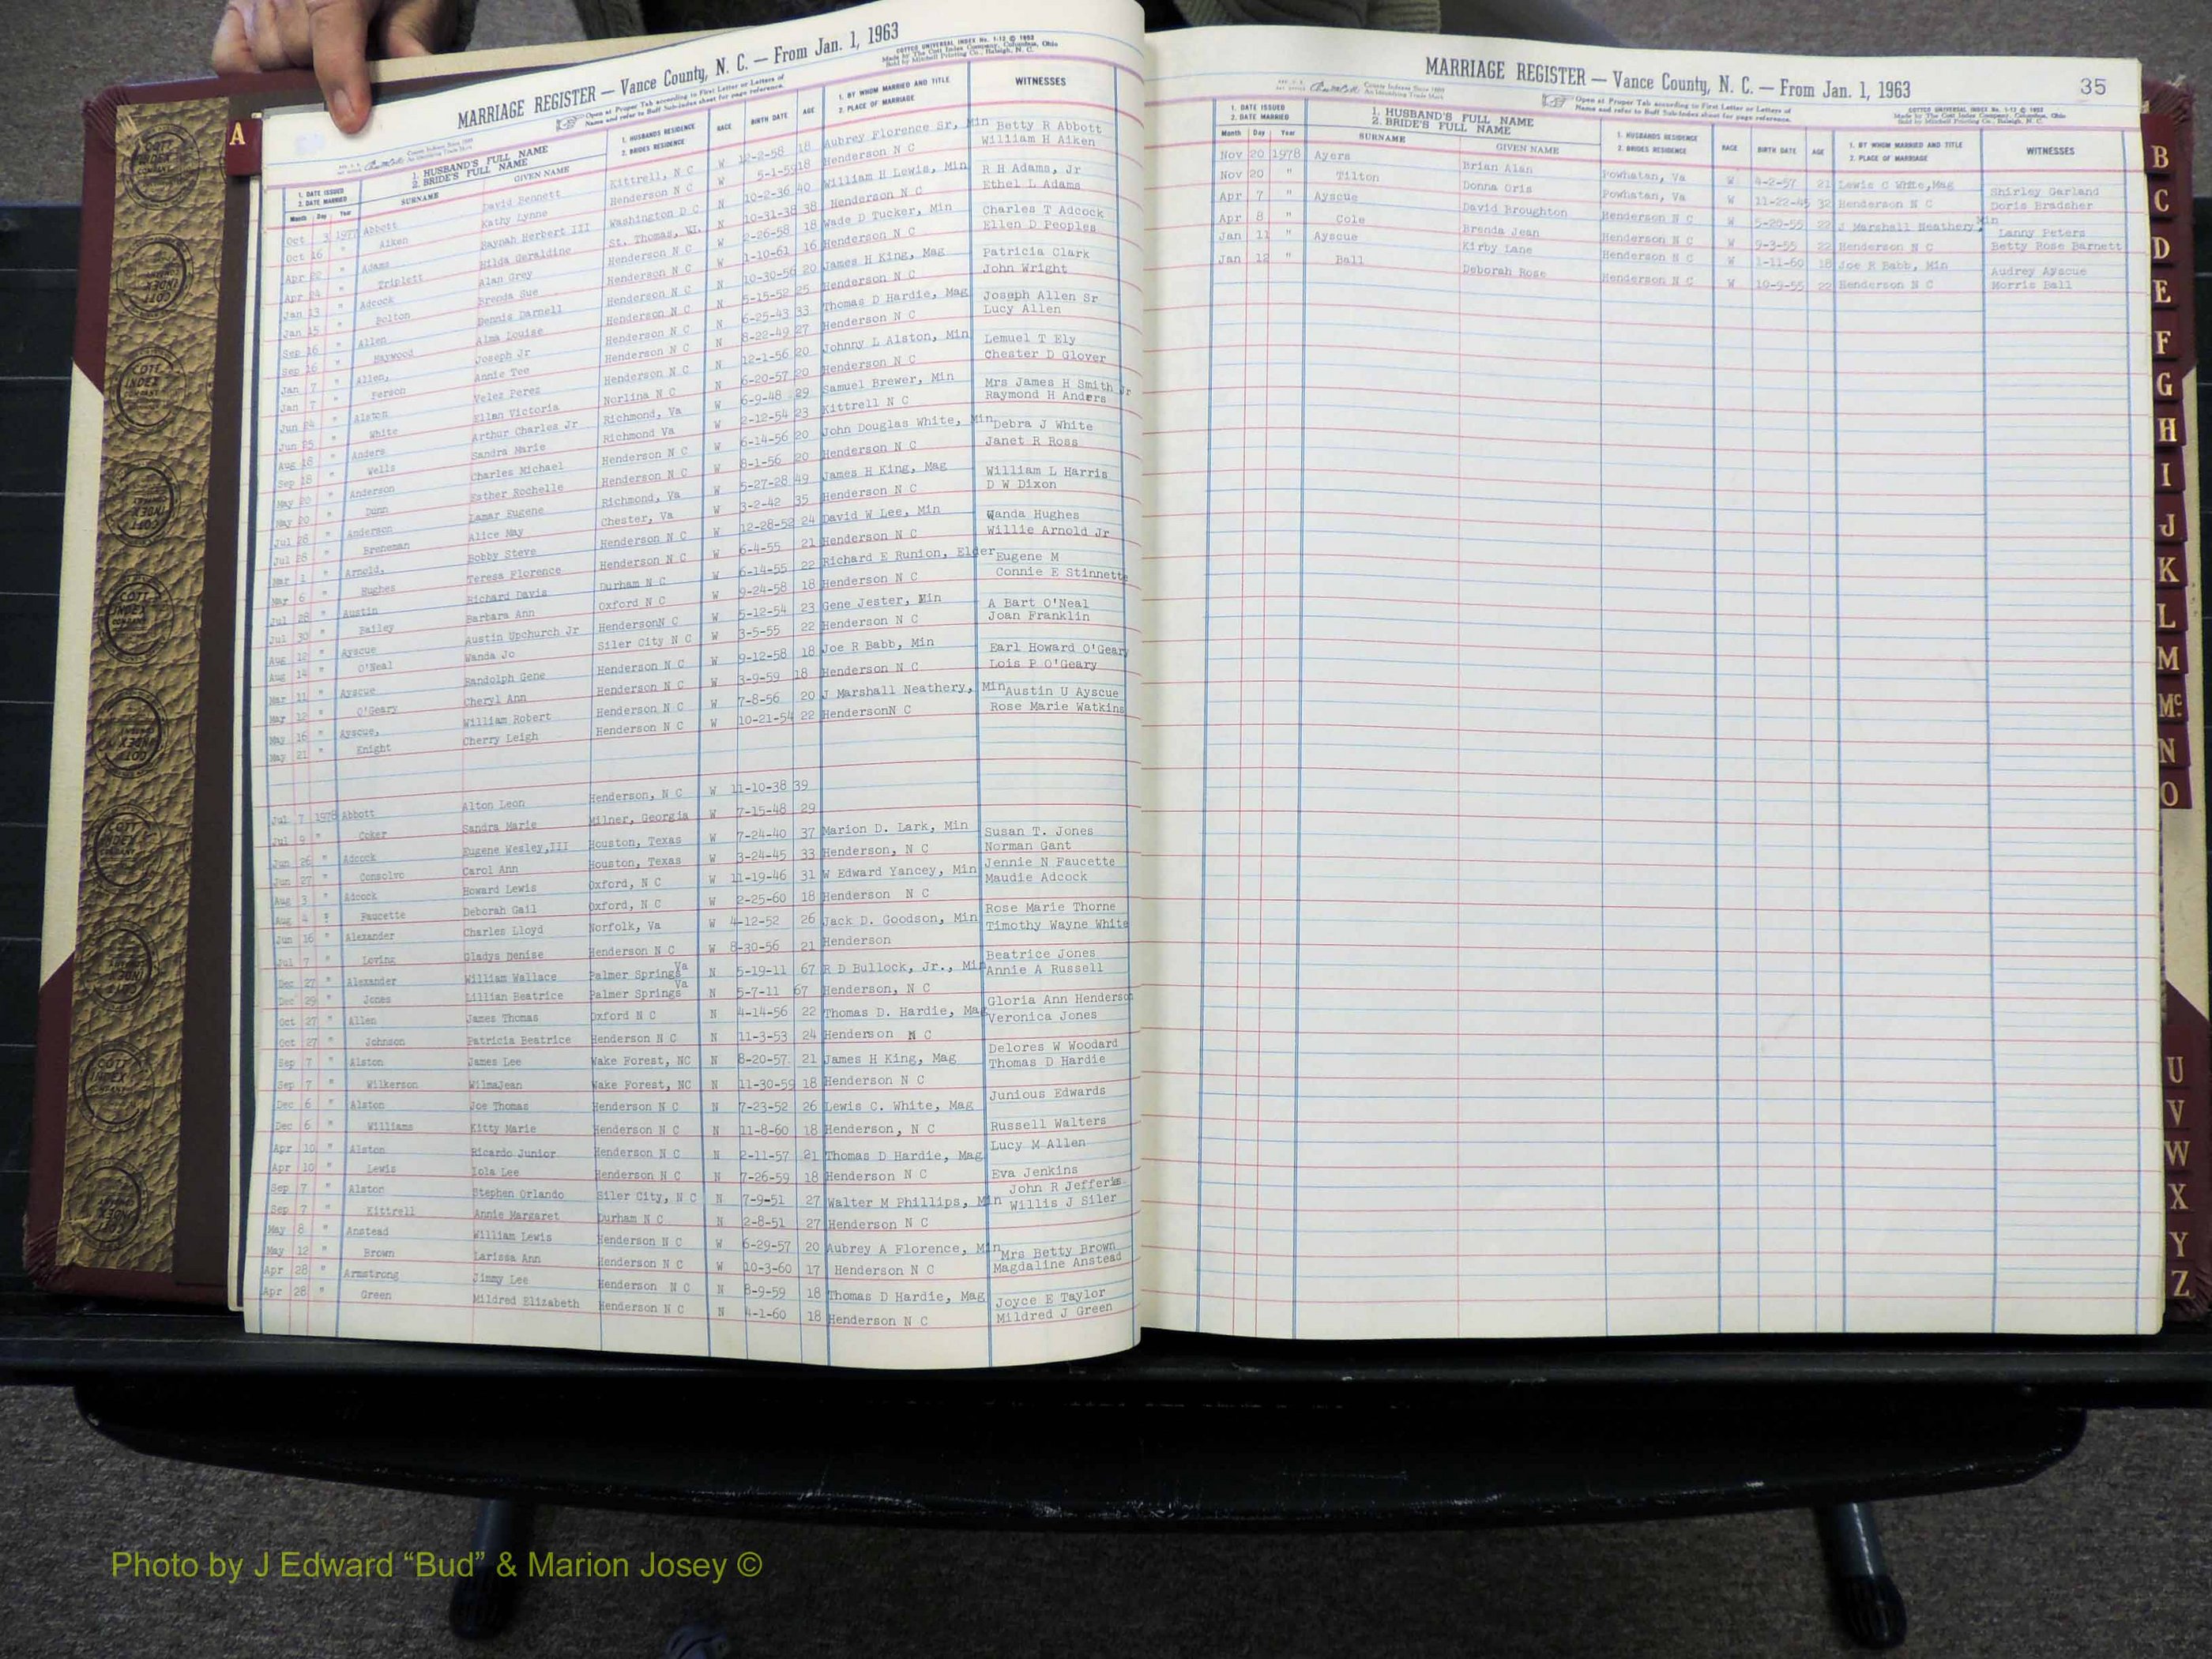 MARRIAGE REGISTER — Vance County, N. C. — From Jan. 1, 1963
COTTCO UNIVERSAL INDEX No. 1-12 © 1963
Made by The Cott Index Company, Columbus, Ohio
Sold by Mitchell Printing Co., Raleigh, N. C.
Open at Proper Tab according to First Letter or Letters of
Name and refer to Buff Sub-Index sheet for page reference.
1. DATE ISSUED 2. DATE MARRIED Month Day Year 1. HUSBAND'S FULL NAME 2. BRIDE'S FULL NAME SURNAME GIVEN NAME 1. HUSBANDS RESIDENCE 2. BRIDES RESIDENCE RACE BIRTH DATE AGE 1. BY WHOM MARRIED AND TITLE 2. PLACE OF MARRIAGE WITNESSES
A
Oct 3 1977 Abbott David Bennett Kittrell, N C W 12-2-58 18 Aubrey Florence Sr, Min Betty R Abbott
Oct 16 " Aiken Kathy Lynne Henderson N C W 5-1-59 18 Henderson N C William H Aiken
Apr 22 " Adams Raynah Herbert III Washington D C N 10-2-36 40 William H Lewis, Min R H Adams, Jr
Apr 24 " Triplett Hilda Geraldine St. Thomas, VI. N 10-31-38 38 Henderson N C Ethel L Adams
Jan 13 " Adcock Alan Grey Henderson N C W 2-26-58 18 Wade D Tucker, Min Charles T Adcock
Jan 15 " Bolton Brenda Sue Henderson N C W 1-10-61 16 Henderson N C Ellen D Peoples
Sep 16 " Allen Dennis Darnell Henderson N C N 10-30-56 20 James H King, Mag Patricia Clark
Sep 16 " Haywood Alma Louise Henderson N C N 5-15-52 25 Henderson N C John Wright
Jan 7 " Allen, Joseph Jr Henderson N C N 6-25-43 33 Thomas D Hardie, Mag Joseph Allen Sr
Jan 7 " Person Annie Tee Henderson N C N 8-22-49 27 Henderson N C Lucy Allen
Jun 24 " Alston Velez Perez Norlina N C N 12-1-56 20 Johnny L Alston, Min Lemuel T Ely
Jun 25 " White Ellan Victoria Richmond, Va N 6-20-57 20 Henderson N C Chester D Glover
Aug 18 " Anders Arthur Charles Jr Richmond Va W 6-9-48 29 Samuel Brewer, Min Mrs James H Smith Jr
Sep 18 " Wells Sandra Marie Henderson N C W 2-12-54 23 Kittrell N C Raymond H Anders
May 20 " Anderson Charles Michael Henderson N C W 6-14-56 20 John Douglas White, Min Debra J White
May 20 " Dunn Esther Rochelle Henderson N C W 8-1-56 20 Henderson N C Janet R Ross
Jul 28 " Anderson Lamar Eugene Richmond, Va W 5-27-28 49 James H King, Mag William L Harris
Jul 28 " Breneman Alice May Chester, Va W 3-2-42 35 Henderson N C D W Dixon
Mar 1 " Arnold, Bobby Steve Henderson N C W 12-28-52 24 David W Lee, Min Wanda Hughes
Mar 6 " Hughes Teresa Florence Henderson N C W 6-4-55 21 Henderson N C Willie Arnold Jr
Jul 28 " Austin Richard Davis Durham N C W 6-14-55 22 Richard E Runion, Elder Eugene M
Jul 30 " Bailey Barbara Ann Oxford N C W 9-24-58 18 Henderson N C Connie E Stinnette
Aug 12 " Ayscue Austin Upchurch Jr HendersonN C W 5-12-54 23 Gene Jester, Min A Bart O'Neal
Aug 14 " O'Neal Wanda Jo Siler City N C W 3-5-55 22 Henderson N C Joan Franklin
Mar 11 " Ayscue Randolph Gene Henderson N C W 9-12-58 18 Joe R Babb, Min Earl Howard O'Geary
Mar 12 " O'Geary Cheryl Ann Henderson N C W 3-9-59 18 Henderson N C Lois P O'Geary
May 16 " Ayscue, William Robert Henderson N C W 7-8-56 20 J Marshall Neathery, Min Austin U Ayscue
May 21 " Knight Cherry Leigh Henderson N C W 10-21-54 22 HendersonN C Rose Marie Watkins
Jul 7 1978 Abbott Alton Leon Henderson, N C W 11-10-38 39
Jul 9 " Coker Sandra Marie Milner, Georgia W 7-15-48 29
Jun 26 " Adcock Eugene Wesley,III Houston, Texas W 7-24-40 37 Marion D. Lark, Min Susan T. Jones
Jun 27 " Consolvo Carol Ann Houston, Texas W 3-24-45 33 Henderson, N C Norman Gant
Aug 3 " Adcock Howard Lewis Oxford, N C W 11-19-46 31 W Edward Yancey, Min Jennie N Faucette
Aug 4 " Faucette Deborah Gail Oxford, N C W 2-25-60 18 Henderson N C Maudie Adcock
Jun 16 " Alexander Charles Lloyd Norfolk, Va W 4-12-52 26 Jack D. Goodson, Min Rose Marie Thorne
Jul 7 " Loving Gladys Denise Henderson N C W 8-30-56 21 Henderson Timothy Wayne White
Dec 27 " Alexander William Wallace Palmer Springs Va N 5-19-11 67 R D Bullock, Jr., Min Beatrice Jones
Dec 29 " Jones Lillian Beatrice Palmer Springs Va N 5-7-11 67 Henderson, N C Annie A Russell
Oct 27 " Allen James Thomas Oxford N C N 4-14-56 22 Thomas D. Hardie, Mag Gloria Ann Henderson
Oct 27 " Johnson Patricia Beatrice Henderson N C N 11-3-53 24 Henderson N C Veronica Jones
Sep 7 " Alston James Lee Wake Forest, NC N 8-20-57 21 James H King, Mag Delores W Woodard
Sep 7 " Wilkerson WilmaJean Wake Forest, NC N 11-30-59 18 Henderson N C Thomas D Hardie
Dec 6 " Alston Joe Thomas Henderson N C N 7-23-52 26 Lewis C. White, Mag Junious Edwards
Dec 6 " Williams Kitty Marie Henderson N C N 11-8-60 18 Henderson, N C Russell Walters
Apr 10 " Alston Ricardo Junior Henderson N C N 2-11-57 21 Thomas D Hardie, Mag Lucy M Allen
Apr 10 " Lewis Iola Lee Henderson N C N 7-26-59 18 Henderson N C Eva Jenkins
Sep 7 " Alston Stephen Orlando Siler City, N C N 7-9-51 27 Walter M Phillips, Min John R Jefferis
Sep 7 " Kittrell Annie Margaret Durham N C N 2-8-51 27 Henderson N C Willis J Siler
May 8 " Anstead William Lewis Henderson N C W 6-29-57 20 Aubrey A Florence, Min Mrs Betty Brown
May 12 " Brown Larissa Ann Henderson N C W 10-3-60 17 Henderson N C Magdaline Anstead
Apr 28 " Armstrong Jimmy Lee Henderson N C N 8-9-59 18 Thomas D Hardie, Mag Joyce E Taylor
Apr 28 " Green Mildred Elizabeth Henderson N C N 4-1-60 18 Henderson N C Mildred J Green
MARRIAGE REGISTER — Vance County, N. C. — From Jan. 1, 1963
35
Open at Proper Tab according to First Letter or Letters of
Name and refer to Buff Sub-Index sheet for page reference.
COTTCO UNIVERSAL INDEX No. 1-12 © 1963
Made by The Cott Index Company, Columbus, Ohio
Sold by Mitchell Printing Co., Raleigh, N. C.
1. DATE ISSUED 2. DATE MARRIED Month Day Year 1. HUSBAND'S FULL NAME 2. BRIDE'S FULL NAME SURNAME GIVEN NAME 1. HUSBANDS RESIDENCE 2. BRIDES RESIDENCE RACE BIRTH DATE AGE 1. BY WHOM MARRIED AND TITLE 2. PLACE OF MARRIAGE WITNESSES
Nov 20 1978 Ayers Brian Alan Powhatan, Va W 4-2-57 21 Lewis C White,Mag Shirley Garland
Nov 20 " Tilton Donna Oris Powhatan, Va W 11-22-45 32 Henderson N C Doris Bradsher
Apr 7 " Ayscue David Broughton Henderson N C W 5-20-55 22 J Marshall Neathery, Min Lanny Peters
Apr 8 " Cole Brenda Jean Henderson N C W 9-3-55 22 Henderson N C Betty Rose Barnett
Jan 11 " Ayscue Kirby Lane Henderson N C W 1-11-60 18 Joe R Babb, Min Audrey Ayscue
Jan 12 " Ball Deborah Rose Henderson N C W 10-9-55 22 Henderson N C Morris Ball
B
C
D
E
F
G
H
I
J
K
L
M
Mc
N
O
U
V
W
X
Y
Z
Photo by J Edward “Bud” & Marion Josey ©